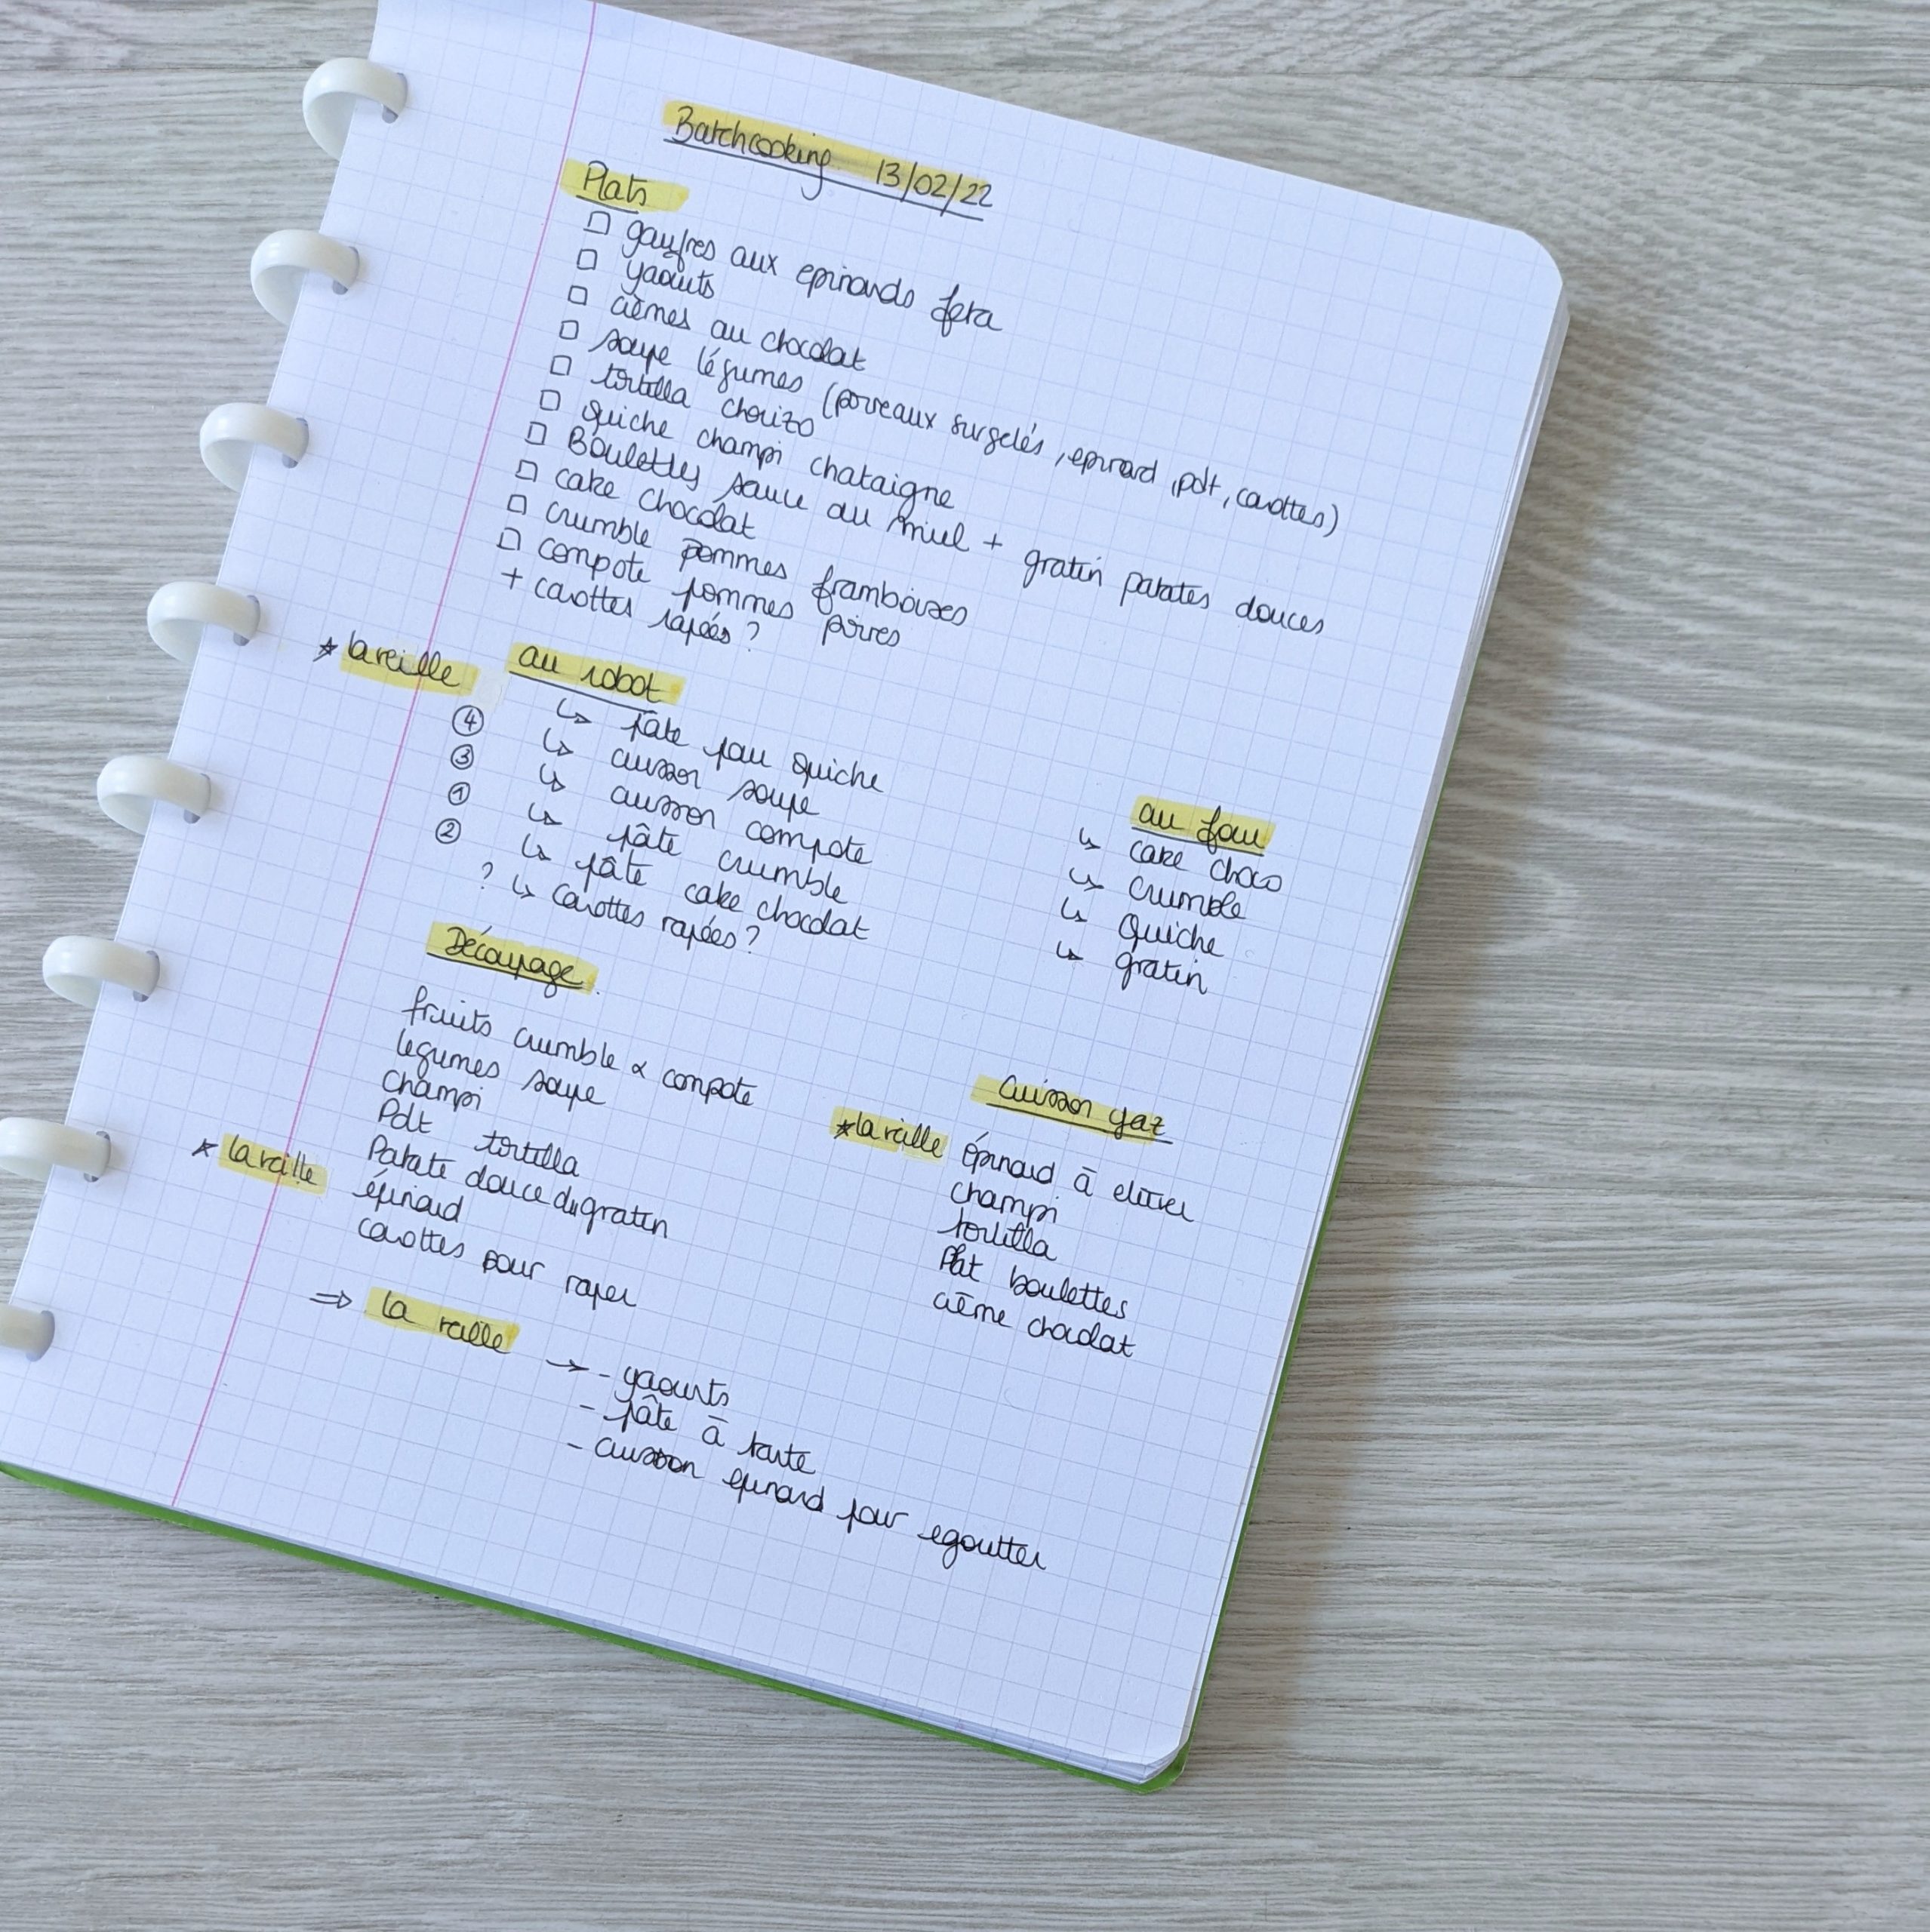 Batchcooking 13/02/22
Plats
□ gaufres aux epinards feta
□ yaourts
□ crèmes au chocolat
□ soupe légumes (poireaux surgelés, epinard, pdt, carottes)
□ tortilla chorizo
□ quiche champi chataigne
□ Boulettes sauce au miel + gratin patates douces
□ cake chocolat
□ crumble pommes framboises
□ compote pommes poires
+ carottes rapées ?
* la veille au robot
↳ pâte pour quiche
④ ↳ cuisson soupe
③ ↳ cuisson compote
① ↳ pâte crumble
② ↳ pâte cake chocolat
? ↳ carottes rapées ?
au four
↳ cake choco
↳ crumble
↳ Quiche
↳ gratin
Découpage
fruits crumble & compote
legumes soupe
champi
Pdt tortilla
Patate douce du gratin
* la veille épinard
carottes pour raper
cuisson gaz
* la veille épinard à essorer
champi
tortilla
Plat boulettes
crème chocolat
⇒ la veille → - yaourts
- pâte à tarte
- cuisson epinard pour egoutter